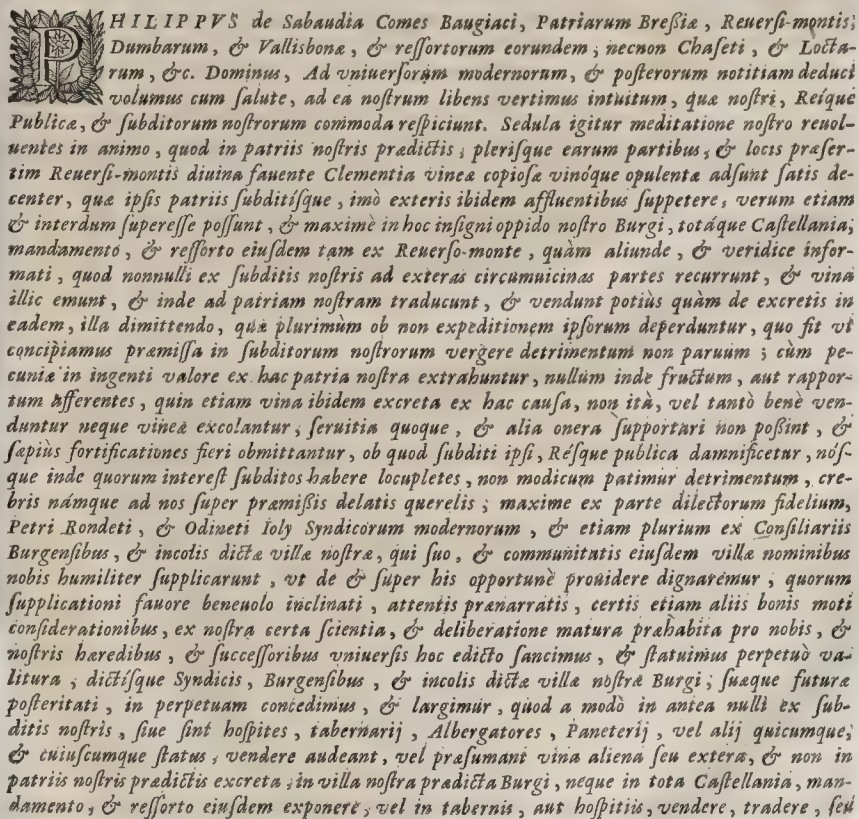 PHILIPPVS de Sabaudia Comes Baugiaci, Patriarum Breßiæ, Reuerſi-montis;
Dumbarum, & Vallisbonæ, & reſſortorum eorundem; necnon Chaſeti, & Locta-
rum, &c. Dominus, Ad vniuerſorum modernorum, & poſterorum notitiam deduci
volumus cum ſalute, ad ea noſtrum libens vertimus intuitum, quæ noſtri, Reíque
Publicæ, & ſubditorum noſtrorum commoda reſpiciunt. Sedula igitur meditatione noſtro reuol-
uentes in animo, quod in patriis noſtris prædictis; pleriſque earum partibus; & locis præſer-
tim Reuerſi-montis diuina fauente Clementia vineæ copioſæ vinóque opulentæ adſunt ſatis de-
center, quæ ipſis patriis ſubditíſque, imò exteris ibidem affluentibus ſuppetere, verum etiam
& interdum ſupereſſe poſſunt, & maximè in hoc inſigni oppido noſtro Burgi, totáque Caſtellania;
mandamento, & reſſorto eiuſdem tam ex Reuerſo-monte, quàm aliunde, & veridice infor-
mati, quod nonnulli ex ſubditis noſtris ad exteras circumuicinas partes recurrunt, & vina
illic emunt, & inde ad patriam noſtram traducunt, & vendunt potiùs quàm de excretis in
eadem, illa dimittendo, quæ plurimùm ob non expeditionem ipſorum deperduntur, quo fit vt
concipiamus præmiſſa in ſubditorum noſtrorum vergere detrimentum non paruum; cùm pe-
cuniæ in ingenti valore ex hac patria noſtra extrahuntur, nullum inde fructum, aut rappor-
tum afferentes, quin etiam vina ibidem excreta ex hac cauſa, non ità, vel tantò benè ven-
duntur neque vineæ excolantur; ſeruitia quoque, & alia onera ſupportari non poßint, &
ſæpiùs fortificationes fieri obmittantur, ob quod ſubditi ipſi, Réſque publica damnificetur, nóſ-
que inde quorum intereſt ſubditos habere locupletes, non modicum patimur detrimentum, cre-
bris námque ad nos ſuper præmißis delatis querelis; maxime ex parte dilectorum fidelium,
Petri Rondeti, & Odineti Ioly Syndicorum modernorum, & etiam plurium ex Conſiliariis
Burgenſibus, & incolis dictæ villæ noſtræ, qui ſuo, & communitatis eiuſdem villæ nominibus
nobis humiliter ſupplicarunt, vt de & ſuper his opportunè prouidere dignaremur, quorum
ſupplicationi fauore beneuolo inclinati, attentis prænarratis, certis etiam aliis bonis moti
conſiderationibus, ex noſtra certa ſcientia, & deliberatione matura præhabita pro nobis, &
noſtris hæredibus, & ſucceſſoribus vniuerſis hoc edicto ſancimus, & ſtatuimus perpetuò va-
litura; dictíſque Syndicis, Burgenſibus, & incolis dictæ villæ noſtræ Burgi; ſuæque futuræ
poſteritati, in perpetuam concedimus, & largimur, quòd a modò in antea nulli ex ſub-
ditis noſtris, ſiue ſint hoſpites, tabernarij, Albergatores, Paneterij, vel alij quicumque;
& cuiuſcumque ſtatus, vendere audeant, vel præſumant vina aliena ſeu extera, & non in
patriis noſtris prædictis excreta; in villa noſtra prædicta Burgi, neque in tota Caſtellania, man-
damento; & reſſorto eiuſdem exponere; vel in tabernis, aut hoſpitiis, vendere, tradere, ſeu